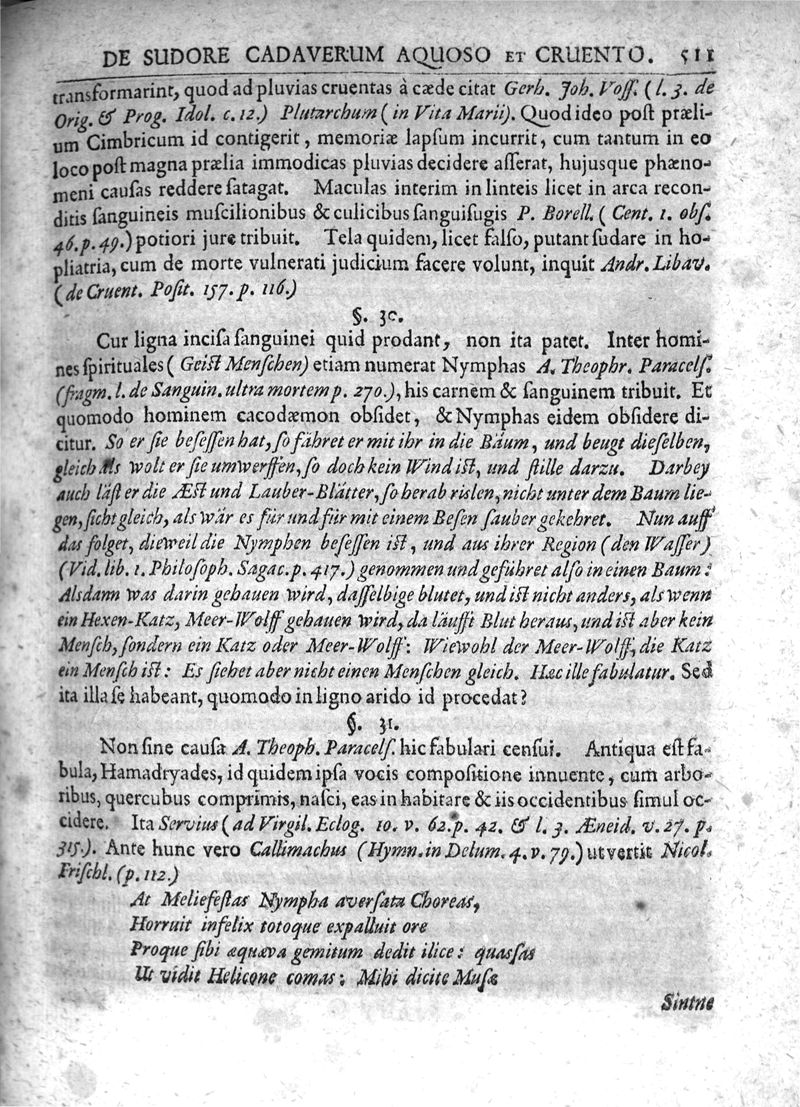 DE SUDORE CADAVERUM AQUOSO ET CRUENTO. 511
transformarint, quod ad pluvias cruentas à cæde citat Gerh. Joh. Voſſ. (l. 3. de
Orig. & Prog. Idol. c. 12.) Plutarchum (in Vita Marii). Quod ideo poſt præli-
um Cimbricum id contigerit, memoriæ lapſum incurrit, cum tantum in eo
loco poſt magna prælia immodicas pluvias decidere aſſerat, hujusque phæno-
meni cauſas reddere ſatagat. Maculas interim in linteis licet in arca recon-
ditis ſanguineis muſcilionibus & culicibus ſanguiſugis P. Borell. (Cent. 1. obſ.
46. p. 49.) potiori jure tribuit. Tela quidem, licet falſo, putant ſudare in ho-
pliatria, cum de morte vulnerati judicium facere volunt, inquit Andr. Libav.
(de Cruent. Poſit. 157. p. 116.)
§. 30.
Cur ligna inciſa ſanguinei quid prodant, non ita patet. Inter homi-
nes ſpirituales (Geiſt Menſchen) etiam numerat Nymphas A. Theophr. Paracelſ.
(fragm. l. de Sanguin. ultra mortem p. 270.), his carnem & ſanguinem tribuit. Et
quomodo hominem cacodæmon obſidet, & Nymphas eidem obſidere di-
citur. So er ſie beſeſſen hat, ſo fähret er mit ihr in die Bäum, und beugt dieſelben,
gleich als wolt er ſie umwerffen, ſo doch kein Wind iſt, und ſtille darzu. Darbey
auch läſt er die Æſt und Lauber-Blätter, ſo herab rislen, nicht unter dem Baum lie-
gen, ſicht gleich, als wär es für und für mit einem Beſen ſauber gekehret. Nun auff
das folget, dieweil die Nymphen beſeſſen iſt, und aus ihrer Region (den Waſſer)
(Vid. lib. 1. Philoſoph. Sagac. p. 417.) genommen und geführet alſo in einen Baum:
Alsdann was darin gehauen wird, daſſelbige blutet, und iſt nicht anders, als wenn
ein Hexen-Katz, Meer-Wolff gehauen wird, da läufft Blut heraus, und iſt aber kein
Menſch, ſondern ein Katz oder Meer-Wolff: Wiewohl der Meer-Wolff, die Katz
ein Menſch iſt: Es ſiehet aber nicht einen Menſchen gleich. Hæc ille fabulatur. Sed
ita illa ſe habeant, quomodo in ligno arido id procedat?
§. 31.
Non ſine cauſa A. Theoph. Paracelſ. hic fabulari cenſui. Antiqua eſt fa-
bula, Hamadryades, id quidem ipſa vocis compoſitione innuente, cum arbo-
ribus, quercubus comprimis, naſci, eas inhabitare & iis occidentibus ſimul oc-
cidere. Ita Servius (ad Virgil. Eclog. 10. v. 62. p. 42. & l. 3. Æneid. v. 27. p.
315.). Ante hunc vero Callimachus (Hymn. in Delum. 4. v. 79.) ut vertit Nicol.
Friſchl. (p. 112.)
At Meliefeſtas Nympha averſata Choreas,
Horruit infelix totoque expalluit ore
Proque ſibi æquæva gemitum dedit ilice: quaſſas
Ut vidit Helicone comas: Mihi dicite Muſæ
Sintne